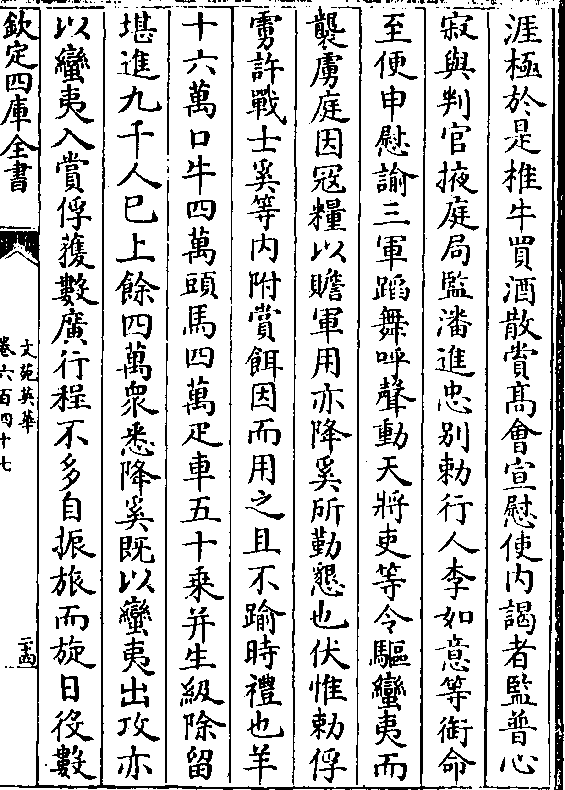 涯極於是椎牛買酒散賞髙會宣慰使内謁者監普心
寂與判官掖庭局監潘進忠别勅行人李如意等銜命
至便申慰諭三軍蹈舞呼聲動天將吏等令驅蠻夷而
襲虜庭因冦糧以贍軍用亦降奚所勤懇也伏惟勅俘
虜許戰士奚等内附賞餌因而用之且不踰時禮也羊
十六萬口牛四萬頭馬四萬疋車五十乗并生級除留
堪進九千人已上餘四萬衆悉降奚既以蠻夷出攻亦
以蠻夷入賞俘獲數廣行程不多自振旅而旋日役數
欽定四庫全書
文苑英華
卷六百四十七
二十四